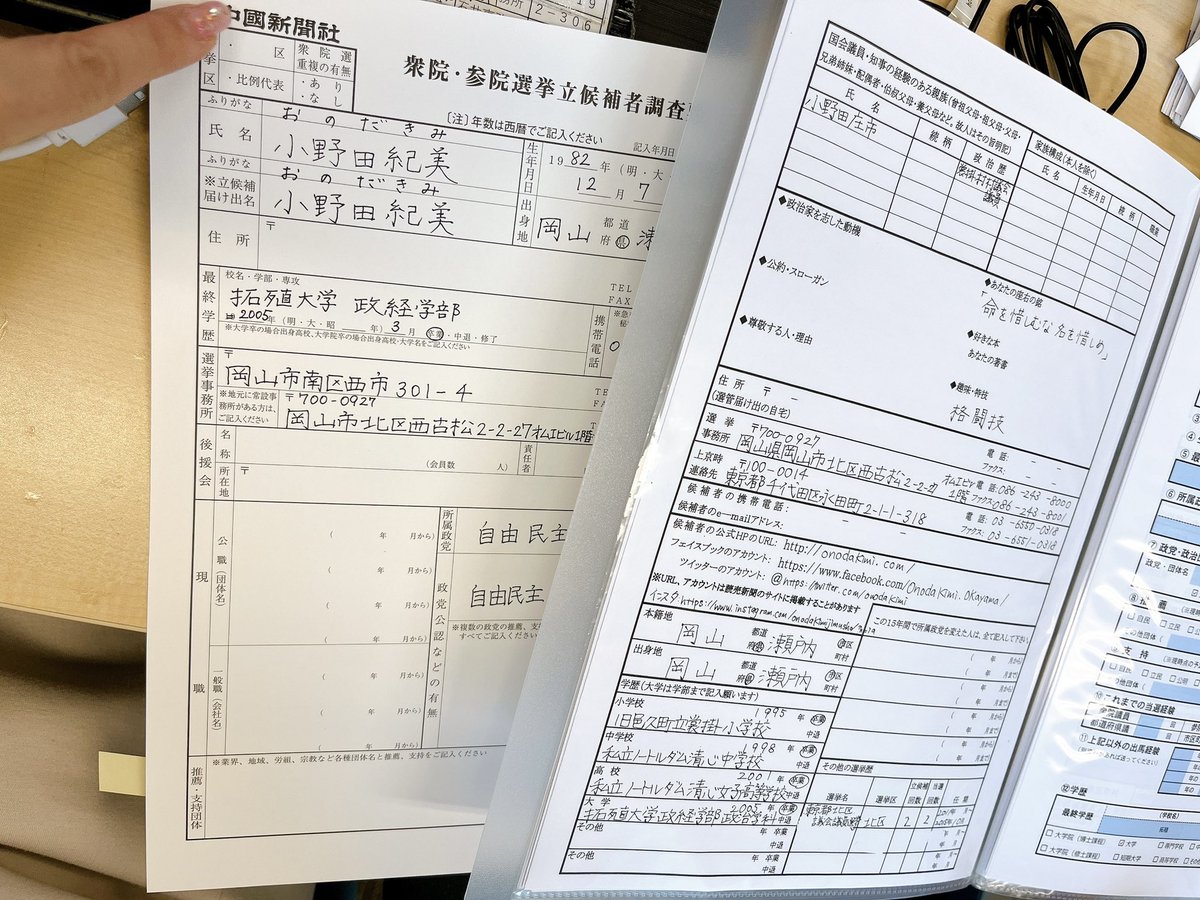 2-306
中國新聞社
衆院・参院選挙立候補者調査
〔注〕年数は西暦でご記入ください
記入年月日
挙区
・　区
・比例代表
衆院選
重複の有無
・あり
・なし
ふりがな
おのだきみ
氏名
小野田紀美
ふりがな
おのだきみ
※立候補
届け出名
小野田紀美
生年月日
1982年（明・大・
12月7
出身地
岡山 都道府県
住所
〒
TEL
FAX
最終学歴
校名・学部・専攻
拓殖大学 政経学部
2005年（明・大・昭　年）3月 卒業・中退・修了
※大学卒の場合出身高校、大学院卒の場合出身高校・大学名をご記入ください
携帯電話
選挙事務所
〒
岡山市南区西市301-4
※地元に常設事務所がある方は、ご記入ください
〒700-0927
岡山市北区西古松2-2-27オムエビル1階
後援会
名称
（会員数　人）
責任者
所在地
〒
現職
公職（団体名）
（　年　月から）
（　年　月から）
（　年　月から）
（　年　月から）
一般職（会社名）
（　年　月から）
（　年　月から）
（　年　月から）
所属政党
自由民主
政党公認などの有無
自由民主
※複数の政党の推薦、支
すべてご記入ください
推薦・支持団体
※業界、地域、労組、宗教など各種団体名と推薦、支持をご記入ください
国会議員・知事の経験のある親族（曾祖父母・祖父母・父母・
兄弟姉妹・配偶者・伯叔父母・養父母など。故人はその旨明記）
氏名
続柄
政治歴
小野田庄市
裳掛村村議会議員
家族構成（本人を除く）
氏名
生年月日
続柄
職業
◆政治家を志した動機
◆公約・スローガン
◆あなたの座右の銘
「命を惜しむな名を惜しめ」
◆尊敬する人・理由
◆好きな本
あなたの著書
◆趣味・特技
格闘技
住所　〒　－
（選管届け出の自宅）
電話：　－　－
ファクス：　－　－
選挙事務所
〒700-0927
岡山県岡山市北区西古松2-2-27
オムエビル1階
電話：086-243-8000
ファクス：086-243-8001
上京時
連絡先
〒100-0014
東京都千代田区永田町2-1-1-318
電話：03-6550-0318
ファクス：03-6551-0318
候補者の携帯電話：　－　－
候補者のe-mailアドレス：
候補者の公式HPのURL：http://onodakimi.com/
フェイスブックのアカウント：https://www.facebook.com/OnodaKimi.OKayama/
ツイッターのアカウント：@https://twitter.com/onodakimi
※URL、アカウントは読売新聞のサイトに掲載することがあります
本籍地
岡山 都道府県 瀬戸内 市区町村
出身地
岡山 都道府県 瀬戸内 市区町村
この15年間で所属政党を変えた人は、全て記入して下さい
（　年　月から
　年　月まで）
学歴（大学は学部まで記入願います）
小学校
1995年 卒業・中退
旧邑久町立裳掛小学校
中学校
1998年 卒業・中退
私立ノートルダム清心中学校
高校
2001年 卒業・中退
私立ノートルダム清心女子高等学校
大学
2005年 卒業・中退
拓殖大学政経学部政治学科
その他
年 卒業
中退
その他
年 卒業
中退
その他の選挙歴
選挙名
選挙区
立候補回数
当選回数
任期
東京都北区
議会議員選挙
北区
2
2
⑥所属政
⑦政党・政治団
政党・団体名
⑧推薦
□自民　□立民　□公
その他の団体（
⑨支持
□自民　□立民　□公明
その他の団体（
⑩これまでの当選経験
参院議員
都道府県議
回
市区町
⑪上記以外の出馬経験
⑫学歴
最終学歴
（学校名）
□大学院（博士課程）
□大学院（修士課程）
☑大学
□短期大学
□専門学校
□高等学校